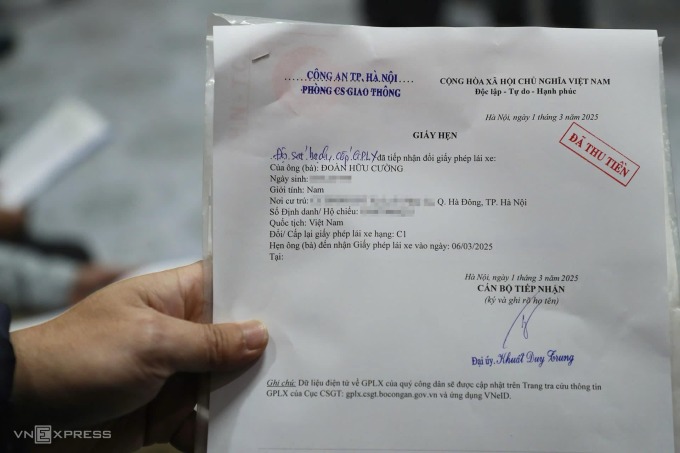 CÔNG AN TP. HÀ NỘI
PHÒNG CS GIAO THÔNG
CỘNG HÒA XÃ HỘI CHỦ NGHĨA VIỆT NAM
Độc lập - Tự do - Hạnh phúc
Hà Nội, ngày 1 tháng 3 năm 2025
GIẤY HẸN
ĐÃ THU TIỀN
cấp GPLX đã tiếp nhận đổi giấy phép lái xe:
Của ông (bà): ĐOÀN HỮU CƯỜNG
Ngày sinh:
Giới tính: Nam
Nơi cư trú: Q. Hà Đông, TP. Hà Nội
Số Định danh/ Hộ chiếu:
Quốc tịch: Việt Nam
Đổi/ Cấp lại giấy phép lái xe hạng: C1
Hẹn ông (bà) đến nhận Giấy phép lái xe vào ngày: 06/03/2025
Tại:
Hà Nội, ngày 1 tháng 3 năm 2025
CÁN BỘ TIẾP NHẬN
(ký và ghi rõ họ tên)
Đại úy. Khuất Duy Trung
Ghi chú: Dữ liệu điện tử về GPLX của quý công dân sẽ được cập nhật trên Trang tra cứu thông tin
GPLX của Cục CSGT: gplx.csgt.bocongan.gov.vn và ứng dụng VNeID.
VNEXPRESS